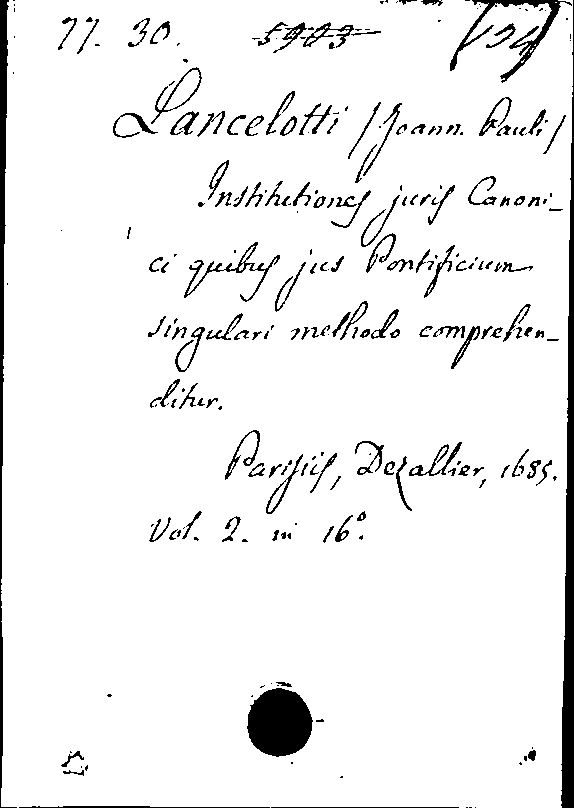 77. 30. 5903
Lancelotti /Joann. Pauli/
Institutiones juris Canoni-
ci quibus jus Pontificium
singulari methodo comprehen-
ditur.
Parisiis, Dezallier, 1685.
Vol. 2. in 16º.